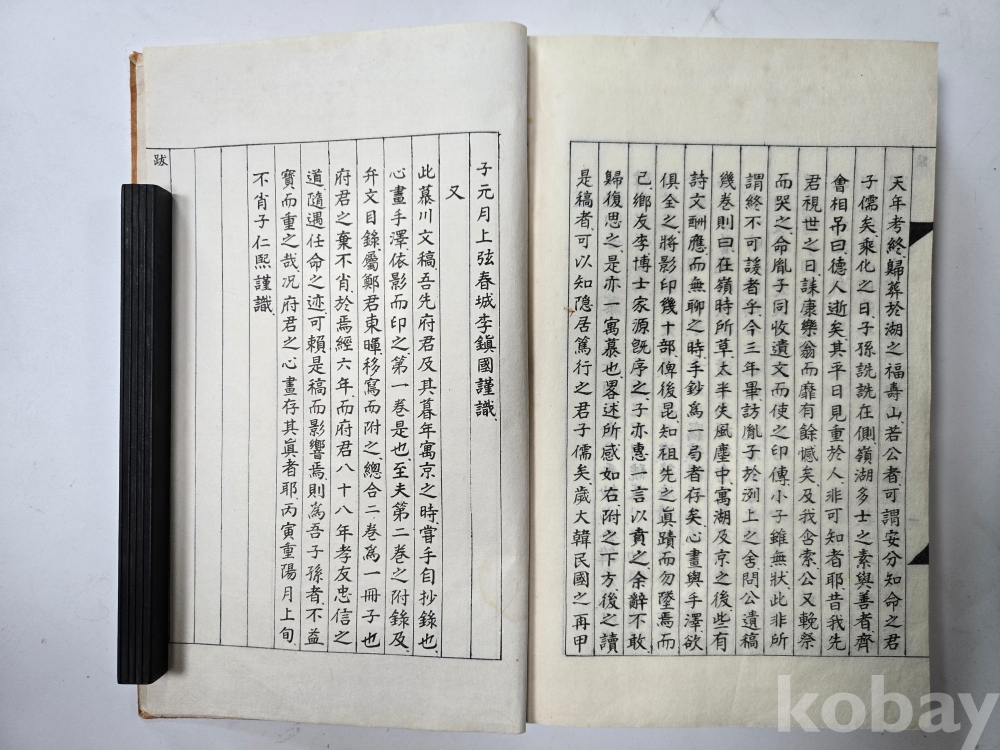 天年考終、歸葬於湖之福壽山、若公者、可謂安分知命之君
子儒矣、乘化之日、子孫詵詵在側、嶺湖多士之素與善者、齊
會相吊曰、德人逝矣、其平日見重於人、非可知者耶、昔我先
君視世之日、誄康樂翁而靡有餘憾矣、及我含索、公又輓祭
而哭之、命胤子同收遺文而使之印傳、小子雖無狀、此非所
謂終不可諼者乎、今三年畢、訪胤子於洌上之舍、問公遺稿
幾卷、則曰、在嶺時所草、太半失風塵中、寓湖及京之後、些有
詩文酬應、而無聊之時、手鈔爲一局者存矣、心畫與手澤、欲
俱全之、將影印幾十部、俾後昆知祖先之眞蹟而勿墜焉、而
己鄕友李博士家源旣序之、子亦惠一言以賁之、余辭不敢
歸復思之、是亦一寓慕也、畧述所感如右、附之下方、後之讀
是稿者、可以知隐居篤行之君子儒矣、歲大韓民國之再甲
子元月上弦、春城李鎭國謹識、
又
此慕川文稿、吾先府君及其暮年寓京之時、嘗手自抄錄也、
心畫手澤、依影而印之、第一卷是也、至夫第二卷之附錄及
弁文目錄、屬鄭君東暉、移寫而附之、總合二卷爲一冊子也
府君之棄不肖、於焉經六年、而府君八十八年孝友忠信之
道、隨遇任命之迹、可賴是稿而影響焉、則爲吾子孫者、不益
寶而重之哉、况府君之心畫存其眞者耶、丙寅重陽月上旬、
不肖子仁熙謹識、
跋
kobay